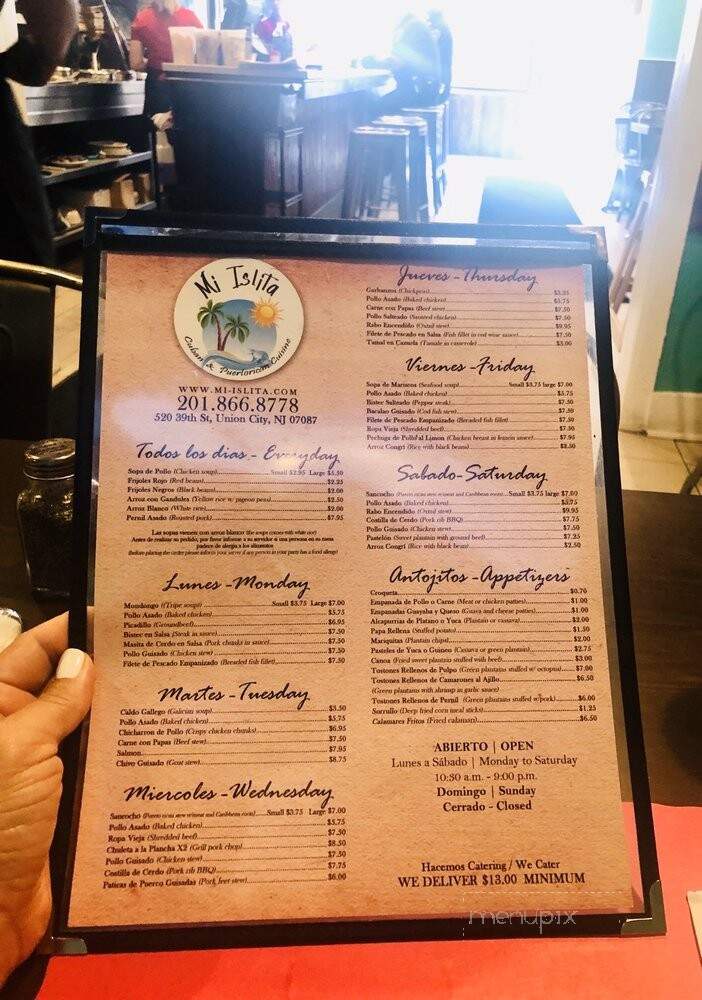 Mi Islita
Cuban & Puertorican Cuisine
WWW.MI-ISLITA.COM
201.866.8778
520 39th St, Union City, NJ 07087
Todos los dias - Everyday
Sopa de Pollo (Chicken soup) Small $2.95 Large $5.50
Frijoles Rojo (Red beans) $2.25
Frijoles Negros (Black beans) $2.00
Arroz con Gandules (Yellow rice w/ pigeon peas) $2.50
Arroz Blanco (White rice) $2.00
Pernil Asado (Roasted pork) $7.95
Las sopas vienen con arroz blanco (the soups comes with white rice)
Antes de realizar su pedido, por favor informe a su servidor si una persona en su mesa
padece de alergia a los alimentos
(Before placing the order please inform your server if any person in your party has a food allergy)
Lunes - Monday
Mondongo (Tripe soup) Small $3.75 Large $7.00
Pollo Asado (Baked chicken) $5.75
Picadillo (Groundbeef) $6.95
Bistec en Salsa (Steak in sauce) $7.50
Masita de Cerdo en Salsa (Pork chunks in sauce) $7.50
Pollo Guisado (Chicken stew) $7.50
Filete de Pescado Empanizado (Breaded fish fillet) $7.50
Martes - Tuesday
Caldo Gallego (Galician soup) $3.50
Pollo Asado (Baked chicken) $5.75
Chicharron de Pollo (Crispy chicken chunks) $6.95
Carne con Papas (Beef stew) $7.50
Salmon $7.95
Chivo Guisado (Goat stew) $8.75
Miercoles - Wednesday
Sancocho (Puerto rican stew w/meat and Caribbean roots) Small $3.75 Large $7.00
Pollo Asado (Baked chicken) $5.75
Ropa Vieja (Shredded beef) $7.50
Chuleta a la Plancha X2 (Grill pork chop) $8.50
Pollo Guisado (Chicken stew) $7.50
Costilla de Cerdo (Pork rib BBQ) $7.75
Paticas de Puerco Guisadas (Pork feet stew) $6.00
Jueves - Thursday
Garbanzos (Chickpeas) $3.25
Pollo Asado (Baked chicken) $5.75
Carne con Papas (Beef stew) $7.50
Pollo Salteado (Sauteed chicken) $7.50
Rabo Encendido (Oxtail stew) $9.95
Filete de Pescado en Salsa (Fish fillet in red wine sauce) $7.50
Tamal en Cazuela (Tamale in casserole) $3.00
Viernes - Friday
Sopa de Marisco (Seafood soup) Small $3.75 large $7.00
Pollo Asado (Baked chicken) $5.75
Bistec Salteado (Pepper steak) $7.50
Bacalao Guisado (Cod fish stew) $7.50
Filete de Pescado Empanizado (Breaded fish fillet) $7.50
Ropa Vieja (Shredded beef) $7.50
Pechuga de Pollo al Limon (Chicken breast in lemon sauce) $7.95
Arroz Congri (Rice with black beans) $2.50
Sabado - Saturday
Sancocho (Puerto rican stew w/meat and Caribbean roots) Small $3.75 large $7.00
Pollo Asado (Baked chicken) $5.75
Rabo Encendido (Oxtail stew) $9.95
Costilla de Cerdo (Pork rib BBQ) $7.75
Pollo Guisado (Chicken stew) $7.50
Pastelón (Sweet plantain with ground beef) $7.25
Arroz Congri (Rice with black bean) $2.50
Antojitos - Appetizers
Croqueta $0.70
Empanada de Pollo o Carne (Meat or chicken patties) $1.00
Empanadas Guayaba y Queso (Guava and cheese patties) $1.00
Alcapurrias de Platano o Yuca (Plantain or cassava) $2.00
Papa Rellena (Stuffed potato) $1.50
Mariquitas (Plantain chips) $2.00
Pasteles de Yuca o Guineo (Cassava or green plantain) $2.75
Canoa (Fried sweet plantain stuffed with beef) $3.00
Tostones Rellenos de Pulpo (Green plantains stuffed w/ octopus) $7.00
Tostones Rellenos de Camarones al Ajillo $6.50
(Green plantains with shrimp in garlic sauce)
Tostones Rellenos de Pernil (Green plantains stuffed w/pork) $6.00
Sorrullo (Deep fried corn meal sticks) $1.25
Calamares Fritos (Fried calamari) $6.50
ABIERTO | OPEN
Lunes a Sábado | Monday to Saturday
10:30 a.m. - 9:00 p.m.
Domingo | Sunday
Cerrado - Closed
Hacemos Catering / We Cater
WE DELIVER $13.00 MINIMUM
menupix